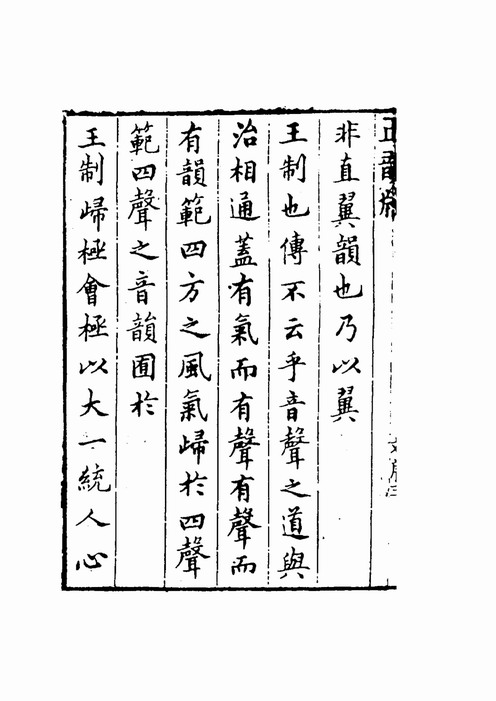 正音
非直翼韻也乃以翼
王制也傳不云乎音聲之道與
治相通蓋有氣而有聲有聲而
有韻範四方之風氣歸於四聲
範四聲之音韻囿於
王制歸極會極以大一統人心